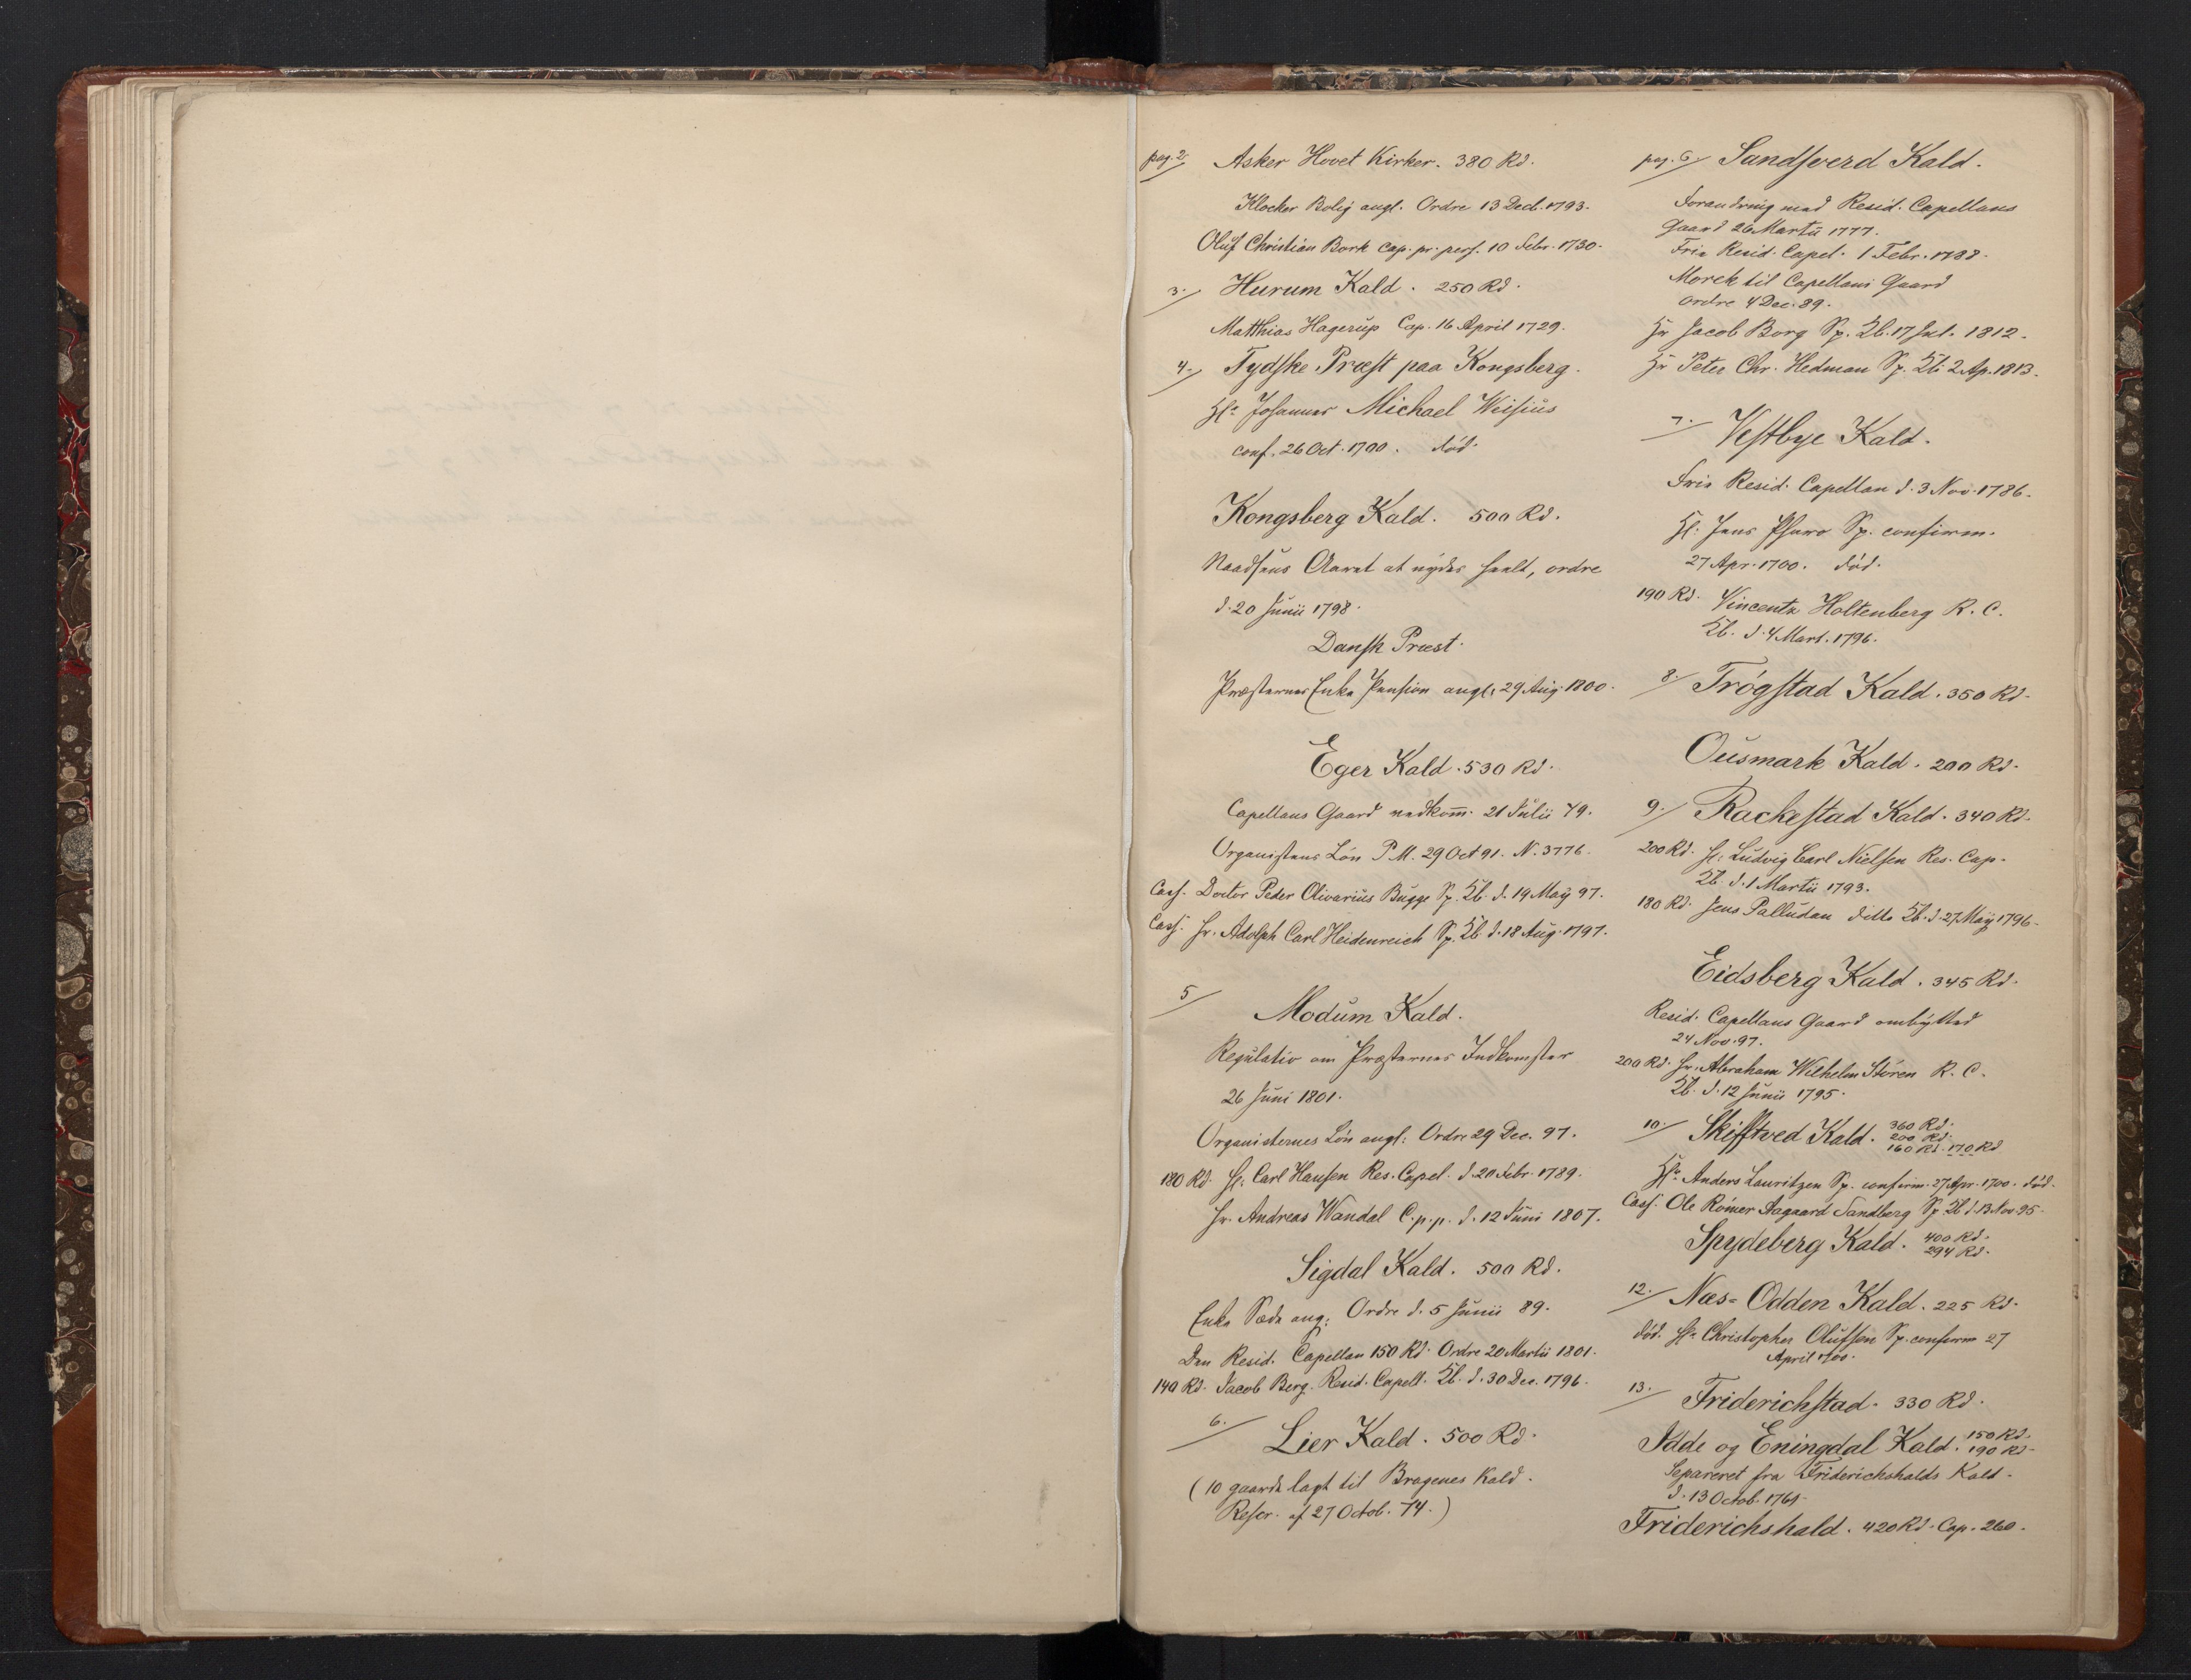 pag. 2. Asker Hovet Kirker. 380 Rd.
Klocker Bolig angl. Ordre 13 Decl. 1793.
Oluf Christian Bork cap. pr. pers. 10 Febr. 1730.
3. Hurum Kald. 250 Rd.
Matthias Hagerup Cap. 16 April 1729.
4. Tydske Præst paa Kongsberg.
Hr. Johannes Michael Weisius
conf. 26 Oct. 1700. død.
Kongsberg Kald. 500 Rd.
Naadsens Aaret at nydes heelt, ordre
d. 20 Junii 1798.
Dansk Præst.
Præsternes Enke Pension angl. 29 Aug. 1800.
Eger Kald. 530 Rd.
Capellans Gaard vedkom̄. 21 Julii 79.
Organistens Løn P.M. 29 Oct 91. N. 3776.
Cass. Doctor Peder Olivarius Bugge Sp. Kb. d. 19 May 97.
Cass. Hr. Adolph Carl Heidenreich Sp. Kb. d. 18 Aug. 1797.
5 Modum Kald.
Regulativ om Præsternes Indkomster
26 Juni 1801.
Organisternes Løn angl: Ordre 29 Dec. 97.
180 Rd. Hr. Carl Hansen Res. Capel. d. 20 Febr. 1789.
Hr. Andreas Wandal C. p. p. d. 12 Juni 1807.
Sigdal Kald. 500 Rd.
Enke Sæde ang: Ordre d. 5 Junii 89.
Den Resid. Capellan 150 Rd. Ordre 20 Martii 1801.
140 Rd. Jacob Berg. Resid. Capell. Kb. d. 30 Dec. 1796.
6. Lier Kald. 500 Rd.
(10 gaarde lagt til Bragenes Kald.
Rescr. af 27 Octob. 74.)
pag. 6 Sandsverd Kald.
Forandring med Resid. Capellans
Gaard 26 Martii 1777.
Frie Resid. Capel. 1 Febr. 1788.
Morek til Capellans Gaard
ordre 4 Dec. 89.
Hr Jacob Borg Sp. Kb. 17 Jul. 1812.
Hr Peter Chr. Hedman Sp. Kb. 2 Ap. 1813.
7. Vestbye Kald.
Frie Resid. Capellan d. 3 Nov. 1786.
Hr. Jens Sp. confirm.
27 Apr. 1700. død.
190 Rd. Vincentz Holtenberg R. C.
Kb. d. 4 Mart. 1796.
8. Trøgstad Kald. 350 Rd.
Ousmark Kald. 200 Rd.
9. Rackestad Kald. 340 Rd.
200 Rd. Hr. Ludvig Carl Nielsen Res. Cap.
Kb. d. 1 Martii 1793.
180 Rd. Jens Palludan ditto Kb. d. 27 May 1796.
Eidsberg Kald. 345 Rd.
Resid. Capellans Gaard ombytted
24 Nov. 97.
200 Rd. Hr. Abraham Wilhelm Støren R. C.
Kb. d. 12 Junii 1795.
10. Skifftved Kald. 360 Rd.
200 Rd.
160 Rd. 170 Rd
Hr. Anders Lauritzen Sp. confirm. 27 Apr. 1700. død.
Cass. Ole Rømer Aagaard Sandberg Sp. Kb d. 13 Nov. 95.
Spydeberg Kald. 400 Rd.
294 Rd.
12. Næs-Odden Kald. 225 Rd.
død. Hr. Christopher Olufsen Sp. confirm 27
April 1700.
13. Friderichstad. 330 Rd.
Idde og Eningdal Kald. 150 Rd.
190 Rd.
Separeret fra Friderichshalds Kald.
d. 13 Octob. 1761.
Friderichshald. 420 Rd. Cap. 260.